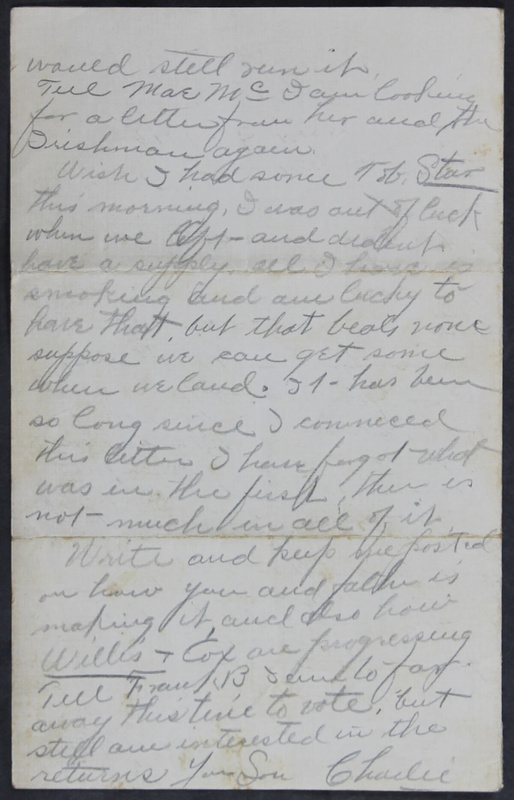 would still run it.
Tell Mae Mc I am looking
for a letter from her and the
Irishman again.
Wish I had some Tob. Star
this morning, I was out of luck
when we left and diden't
have a supply. all I have is
smoking and am lucky to
have that, but that beats none
suppose we can get some
when we land. It has been
so long since I comneced
this letter I have forgot what
was in the first, ther is
not much in all of it.
Write and keep me posted
on how you and father is
making it and also how
Willis + Cox are progressing
Tell Frank B I am to far
away this time to vote, but
still am interested in the
returns Your Son Charlie